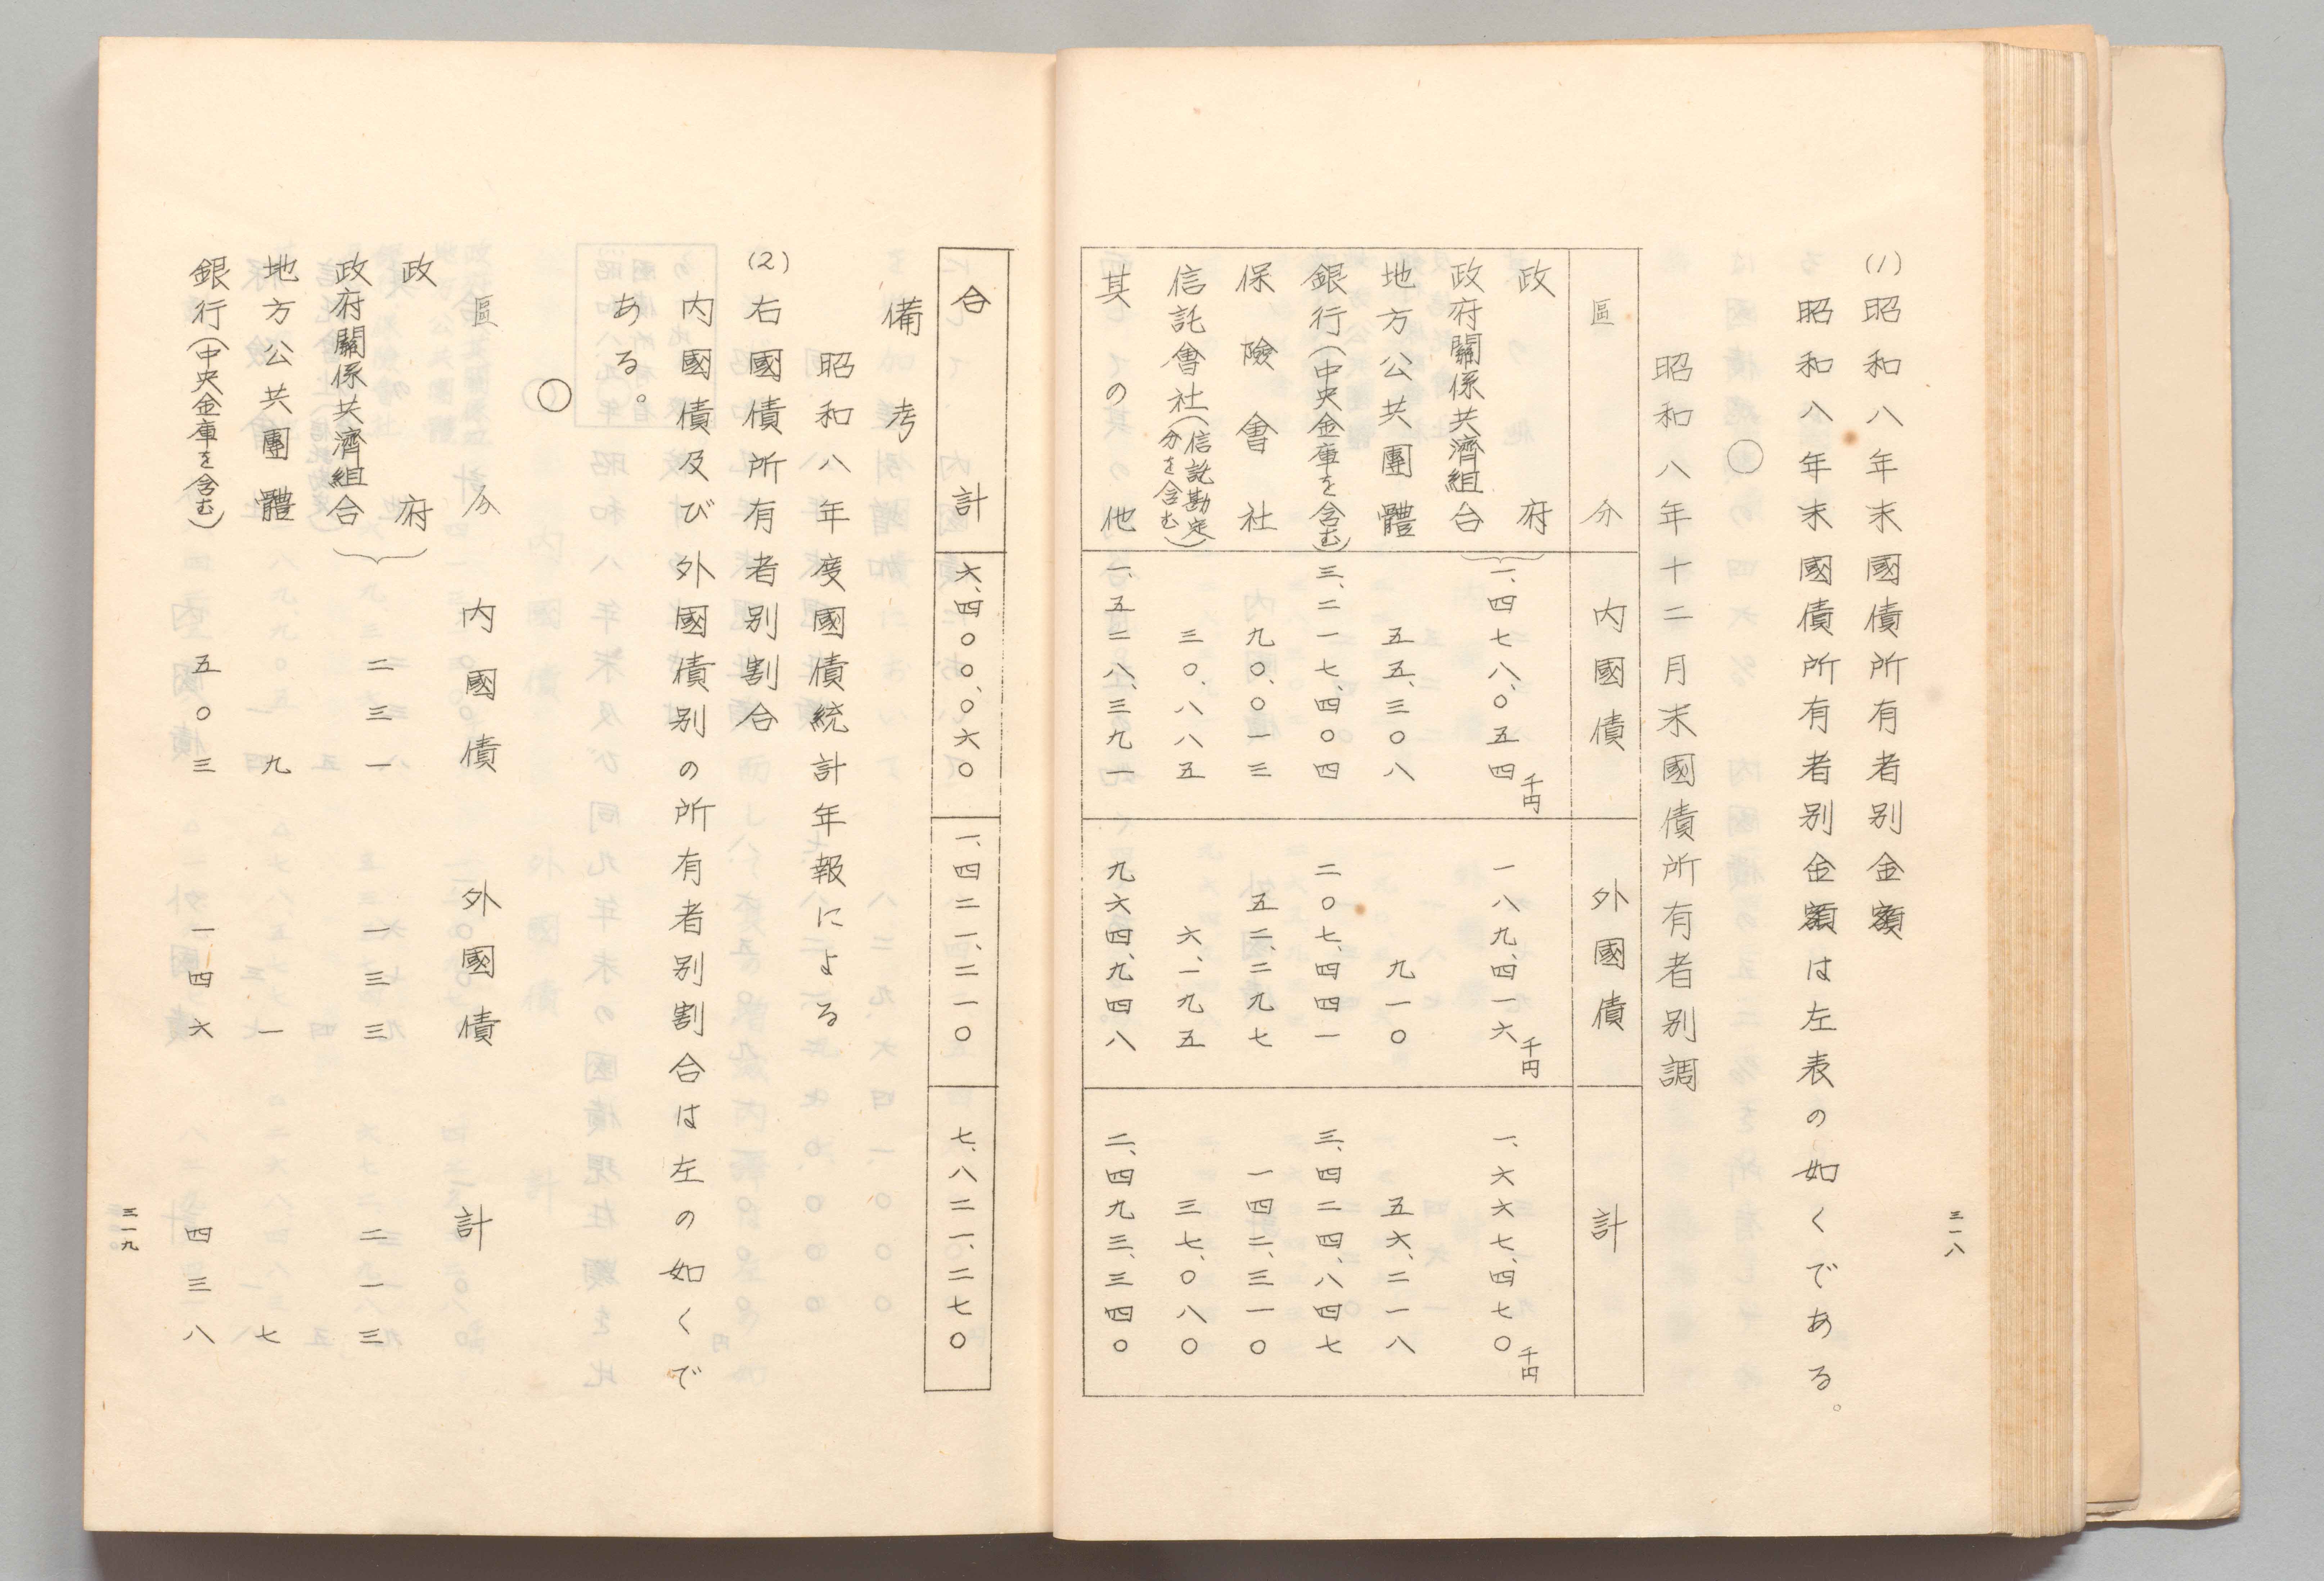 三一八
(1) 昭和八年末國債所有者別金額
昭和八年末國債所有者別金額は左表の如くである。
○
昭和八年十二月末國債所有者別調
區分 内國債 外國債 計
政府
政府關係共濟組合 一、四七八、〇五四千円 一八九、四一六千円 一、六六七、四七〇千円
地方公共團體 五五、三〇八 九一〇 五六、二一八
銀行(中央金庫を含む) 三、二一七、四〇四 二〇七、四四一 三、四二四、八四七
保險會社 九〇、〇一三 五二、二九七 一四二、三一〇
信託會社(信託勘定分を含む) 三〇、八八五 六、一九五 三七、〇八〇
其の他 一、五二八、三九一 九六四、九四八 二、四九三、三四〇
合計 六、四〇〇、〇六〇 一、四二一、二一〇 七、八二一、二七〇
備考
昭和八年度國債統計年報による
(2) 右國債所有者別割合
内國債及び外國債別の所有者別割合は左の如くで
ある。
○
區分 内國債 外國債 計
政府
政府關係共濟組合 二三一 一三三 二一三
地方公共團體 九 一 七
銀行(中央金庫を含む) 五〇三 一四六 四三八
三一九